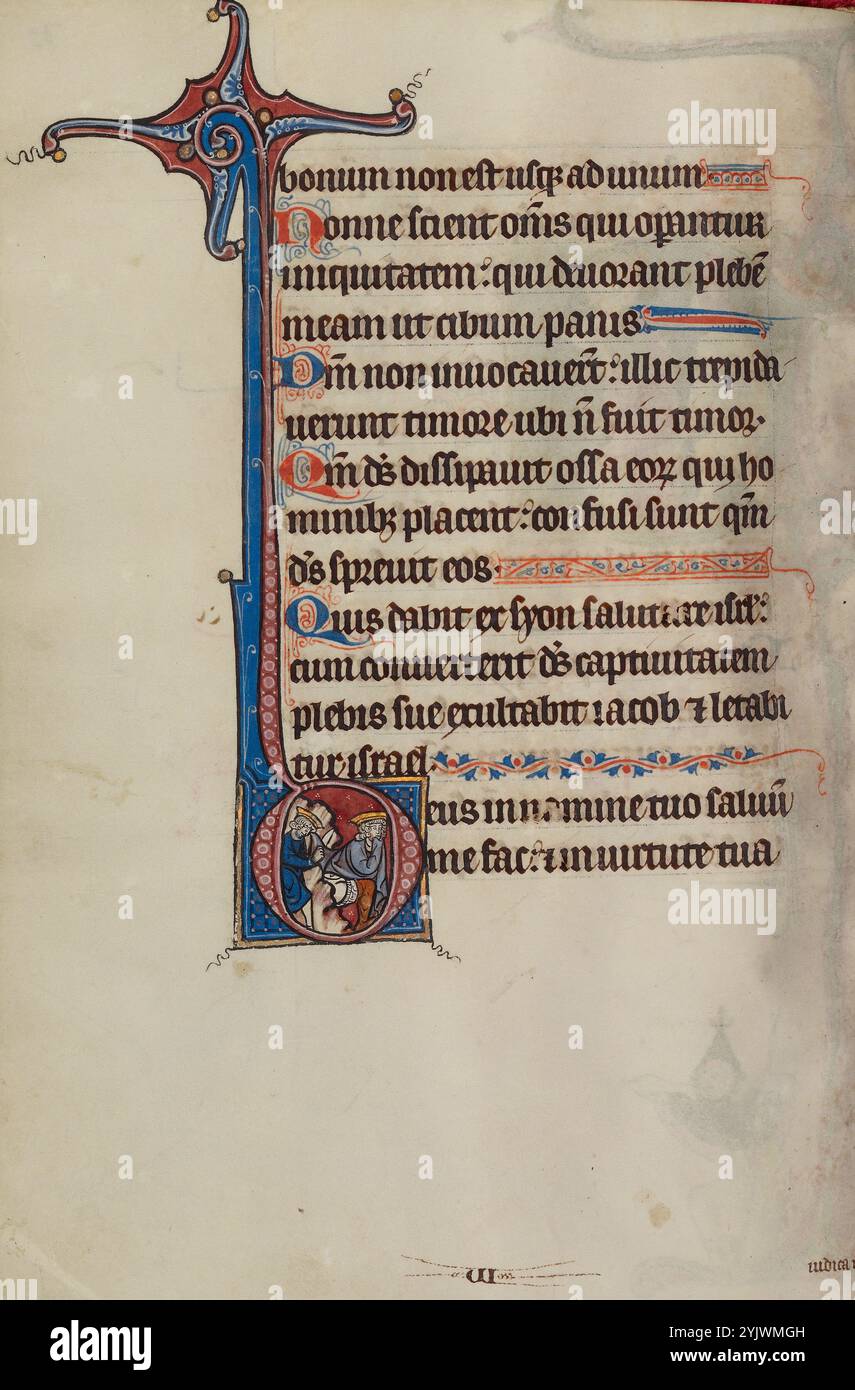 bonum non est usq; ad unum
Nonne scient om̄s qui op̄antur
iniquitatem: qui deuorant plebē
meam ut cibum panis
Dm̄ non inuocauer̄t: illic trepida
uerunt timore ubi n̄ fuit timor.
Qm̄ ds̄ dissipauit ossa eoꝝ qui ho
minibꝫ placent: confusi sunt qm̄
ds̄ spreuit eos.
Quis dabit ex syon salutare isrl̄:
cum conuerterit ds̄ captiuitatem
plebis sue exultabit iacob ⁊ letabi
tur israel.
Deus in nomine tuo saluū
me fac: ⁊ in uirtute tua
iudica
alamy
Image ID: 2YJWMGH
www.alamy.com